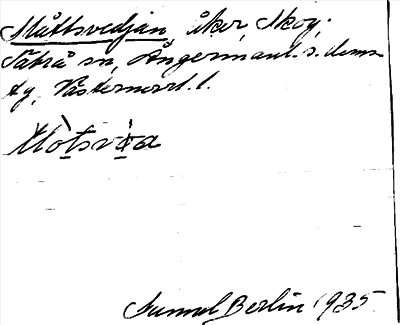 Måttsvedjan, åker, skog;
Sätrå sn, Ångermanl. s. doms-
ag, Västernorrl. l.
Mòtsv̀a
Samuel Berlin 1935.